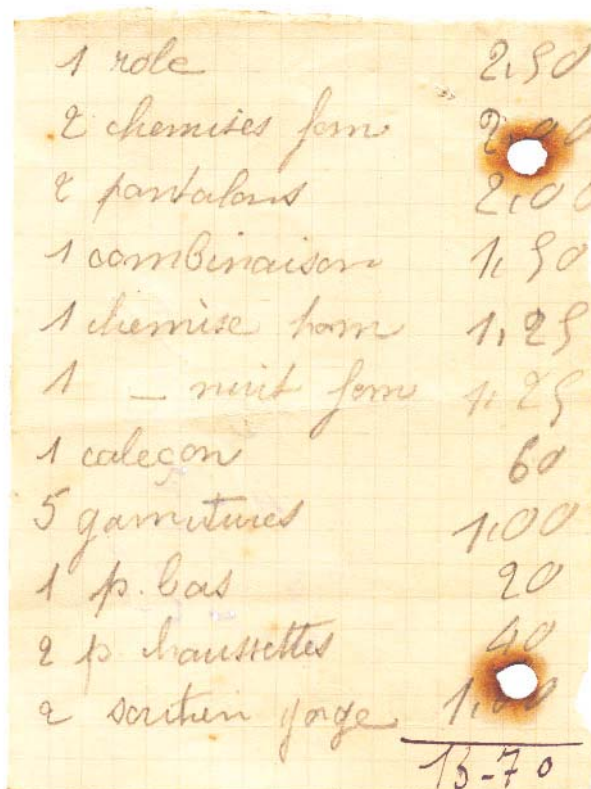 1 robe 2,50
2 chemises fem 2,00
2 pantalons 2,00
1 combinaison 1,50
1 chemise hom 1,25
1 _ nuit fem 1,25
1 caleçon 60
5 garnitures 1,00
1 p. bas 20
2 p chaussettes 40
2 soutien gorge 1,00
13-70